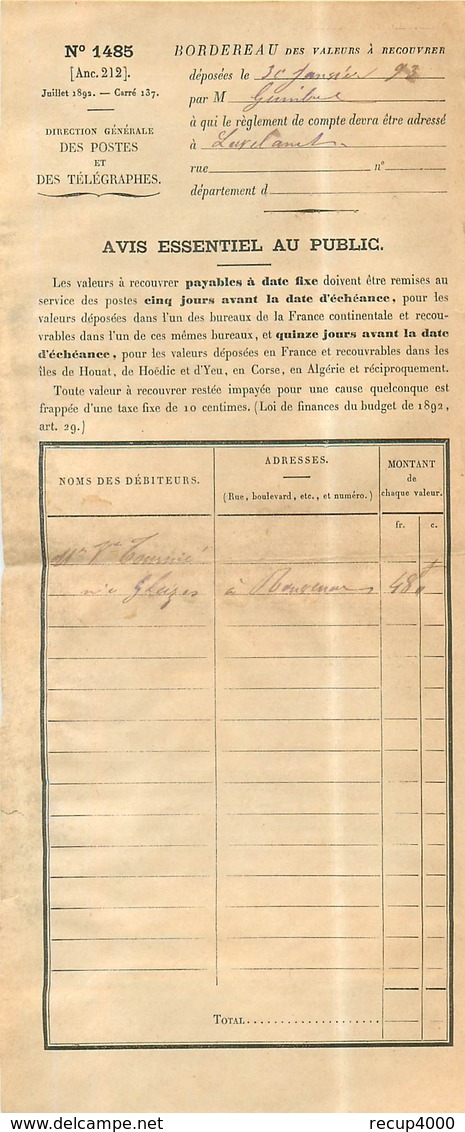 N° 1485
[Anc. 212].
Juillet 1892. — Carré 137.
DIRECTION GÉNÉRALE
DES POSTES
ET
DES TÉLÉGRAPHES.
BORDEREAU DES VALEURS À RECOUVRER
déposées le 30 Janvier 93
par M
à qui le règlement de compte devra être adressé
à Lavelanet
rue n°
département d
AVIS ESSENTIEL AU PUBLIC.
Les valeurs à recouvrer payables à date fixe doivent être remises au
service des postes cinq jours avant la date d'échéance, pour les
valeurs déposées dans l'un des bureaux de la France continentale et recou-
vrables dans l'un de ces mêmes bureaux, et quinze jours avant la date
d'échéance, pour les valeurs déposées en France et recouvrables dans les
îles de Houat, de Hoëdic et d'Yeu, en Corse, en Algérie et réciproquement.
Toute valeur à recouvrer restée impayée pour une cause quelconque est
frappée d'une taxe fixe de 10 centimes. (Loi de finances du budget de 1892,
art. 29.)
NOMS DES DÉBITEURS.
ADRESSES.
(Rue, boulevard, etc., et numéro.)
MONTANT
de
chaque valeur.
fr. c.
Mme Vve
née Gleizes à 48 "
TOTAL
www.delcampe.net
recup4000